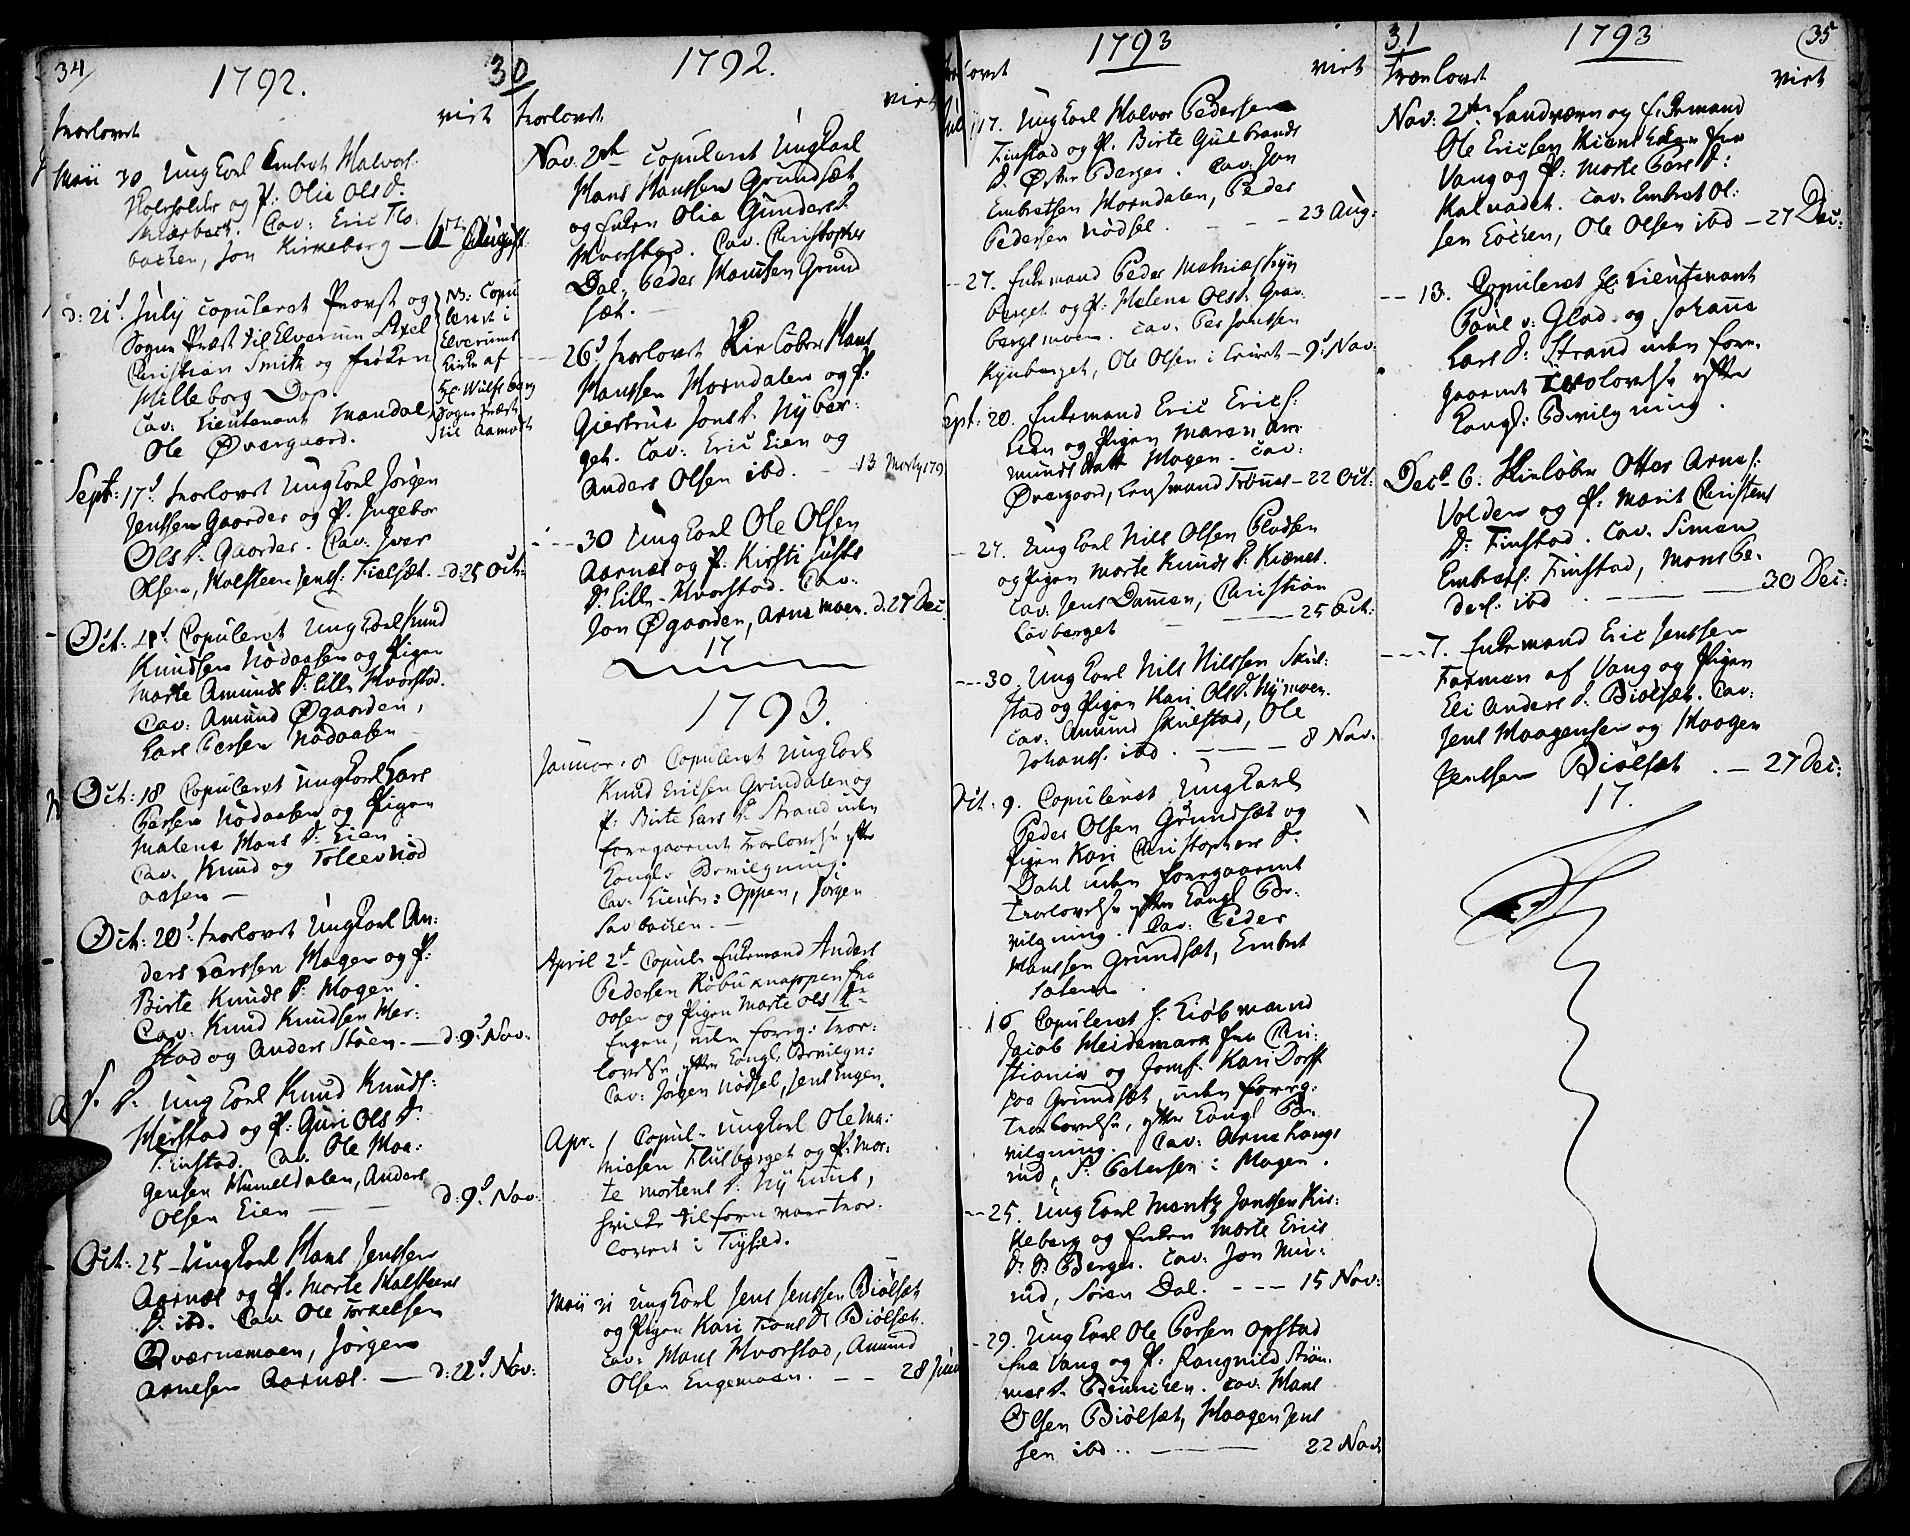 34
1792.
30
Trorlovet
viet
Maii 30 Ung Karl Embret Halvors:
og P: Olia Ols D:
Cav: Eric Flo,
bachen, Jon Kirkeberg — August
d: 21d July copuleret Provst og
Sogne Præst til Elverum Axel
Christian Smith og Frøken
Milleborg Dop.
Cav: Lieutenant Mandal
Ole Øvergaard.
NB: Copu
leret i
Elverums
Kirke af
Hr Wulfsberg
Sogne Præst
til Aamodt
Sept: 17d Trorlovet Ung Karl Jørgen
Jenssen Gaarder og P. Ingebor
Ols D: Gaarder. Cav: Iver
Olsen, Halsteen Jens: Fielset. — d: 25 Oct:
Oct: Copuleret Ung Karl Knud
Knudsen Nødaasen og Pigen
Marte Amunds D: Lille Hvorstad.
Cav: Amund Øgaarden,
Lars Persen Nødaasen
Oct: 18 Copuleret Ung Karl Lars
Persen Nødaasen og Pigen
Malene Hans D: Eien.
Cav: Knud og Tollev Nød
aasen —
Oct: 20d: Trorlovet Ung Karl An:
ders Larssen Mogen og P:
Birte Knuds D: Mogen.
Cav: Knud Knudsen Mer:
stad og Anders Støen. — d: 9d Nov:
s. D. Ung Karl Knud Knuds:
Merstad og P: Guri Ols D:
Finstad. Cav: Ole Moe:
gensen Hummeldalen, Anders
Olsen Eien — — d: 9d Nov:
Oct: 25 — Ung Karl Hans Jenssen
Aarnæs og P. Marte Halsteens
D: ibd. Cav: Ole Torkelsen
Qværnemoen, Jørgen
Arnesen Aarnæs. — d: 22d Nov:
1792.
Trorlovet
viet
Nov: 2den copuleret Ung Karl
Hans Hanssen Grundsæt
og Enken Olia Gunders D
Hvorstad. Cav. Christopher
Dal, Peder Hansen Grund
sæt. —
26d Trorlovet Skieløber Hans
Hanssen Horndalen og P:
Giertrue Jons D. Nyber:
get. Cav: Eric Eien og
Anders Olsen ibd. — 13 Marty 179
30 Ung Karl Ole Olsen
Aarnæs og P. Kirsti Justs
D: Lille Hvorstad. Cav:
Jon Øgaarden, Arne Moen. d: 27 Dec
17
1793.
Januar: 8 Copuleret Ung Karl
Knud Ericsen Grindalen og
P: Birte Lars D: Strand uden
foregaaende Trorlovelse efter
Kongl: Bevilgning.
Cav: Lieutn: Oppen, Jørgen
Løvbachen. —
April 2d Copul: Enkemand Anders
Pedersen Røbuknappen fra
Aasen og Pigen Marte Ols D:
Engen, uden foreg: Tror:
lovelse efter Kongl: Bevilgn:
Cav: Jørgen Nødsel, Jens Engen.
Apr: 1 Copul: Ung Karl Ole Ma:
thiesen Flulsberget og P: Mar:
te Mortens D: Nyhuus,
hvilke tilforn vare Tror:
lovet i Trysild.
Maii 31 Ung Karl Jens Jenssen Biølset
og Pigen Kari Frans D: Biølset.
Cav: Hans Hvorstad, Amund
Olsen Engemoen. — — 28 Juni
1793
viet
17. Ung Karl Halvor Pedersen
Finstad og P. Birte Gulbrands
D: Østre Berger. Cav: Jon
Embretsen Horndalen, Peder
Pedersen Nødsel. — — 23 Aug:
27. Enkemand Peder Mathias Kyn
berget og P: Helena Ols D: Grav:
bergsmoen. Cav: Per Jonssen
Kynberget, Ole Olsen i Kruset — 9d Nov:
Sept: 20. Enkemand Eric Erics:
Lien og Pigen Maren Am
munds Datt Mogen. Cav:
Øvergaard, Lensmand Frones — 22 Oct:
27. Ung Karl Nils Olsen Gladsen
og Pigen Marte Knuds D: Kiernet.
Cav: Jens Dammen, Christian
Løvberget — 25 Oct:
30. Ung Karl Nils Nilssen Skul:
stad og Pigen Kari Ols D: Nymoen.
Cav: Amund Skulstad, Ole
Johans: ibd. — 8 Nov:
Oct: 9. Copuleret Ung Karl
Peder Olsen Grundsæt og
Pigen Kari Christophers D:
Dahl uden foregaaende
Trorlovelse efter Kongl Be:
vilgning. Cav: Peder
Hanssen Grundsæt, Embret
Sætern.
16 Copuleret H. Kiøbmand
Jacob Heidemark fra Chri:
stiania og Jomf. Kari Dorff
paa Grundsæt, uden foreg:
Trorlovelse, efter Kongl Be:
vilgning. Cav: Arne Langs
rud, P: Petersen i Mogen.
25. Ung Karl Mentz Jonssen Kir:
keberg og Enken Marte Erics
D: D: Berger. Cav: Jon Mü:
rud, Søren Dal. — 15 Nov:
29. Ung Karl Ole Persen Opstad
fra Vang og P: Rangnild Sim:
D: Cav: Hans
Olsen Biølset, Maagen Jens
sen ibd. — 22 Nov:
31
1793
35
Trorlovet
viet
Nov: 2den. Landværn og Enkemand
Ole Ericsen fra
Vang og P: Marte Pers D:
Kalvadet. Cav: Embret Ol:
sen Løcken, Ole Olsen ibd — 27 Dec:
13. Copuleret Hr: Lieutenant
Paul v: Glad og Johanne
Lars D: Strand uden fore:
gaaende Trolovelse efter
Kongl: Bevilgning.
Decb 6. Skieløber Otter Arnes:
Volden og P: Marit Christens
D: Finstad. Cav. Simen
Embrets: Finstad, Mons Pe:
ders: ibd — 30 Dec:
7. Enkemand Eric Jenssen
Farmen af Vang og Pigen
Eli Anders D: Biølset. Cav:
Jens Maagensen og Maagen
Jenssen Biølset. — 27 Dec:
17.